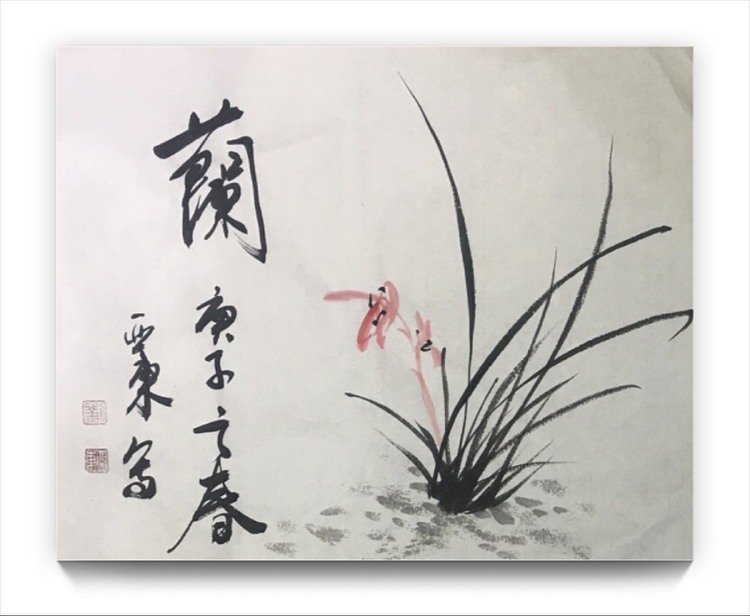 蘭
庚子之春
西東寫